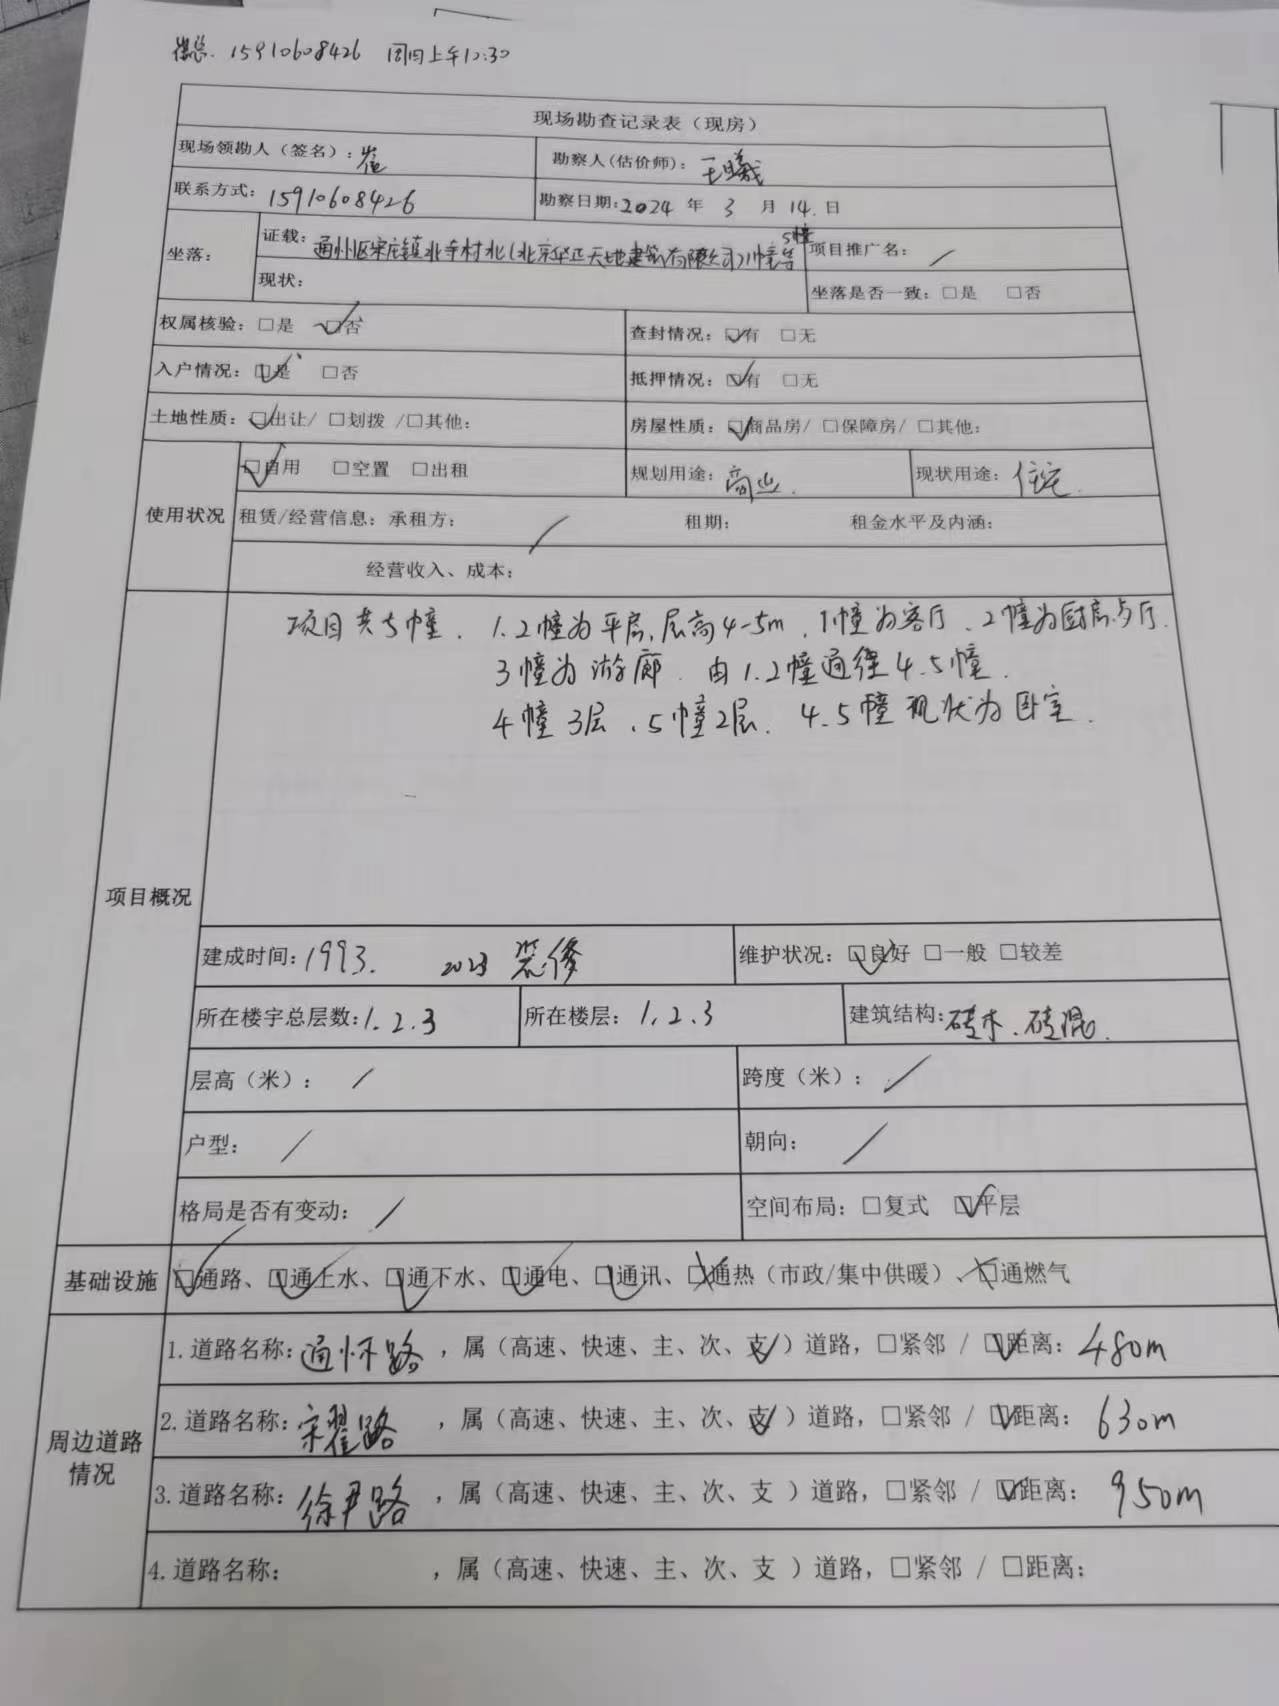 崔总. 15910608426 周四上午10:30
现场勘查记录表（现房）
现场领勘人（签名）：崔 勘察人(估价师)：王曦
联系方式：15910608426 勘察日期：2024 年 3 月 14. 日
坐落： 证载：通州区宋庄镇北寺村北(北京华正天地建筑有限公司)1幢等5幢 项目推广名： /
现状： 坐落是否一致：□是 □否
权属核验：□是 ☑否 查封情况：☑有 □无
入户情况：☑是 □否 抵押情况：☑有 □无
土地性质：☑出让/ □划拨 /□其他： 房屋性质：☑商品房/ □保障房/ □其他：
使用状况 ☑自用 □空置 □出租 规划用途：商业. 现状用途：住宅.
租赁/经营信息：承租方： / 租期： 租金水平及内涵：
经营收入、成本：
项目概况
项目共5幢. 1.2幢为平房,层高4-5m. 1幢为客厅. 2幢为厨房与厅.
3幢为游廊. 由1.2幢通往4.5幢.
4幢3层.5幢2层. 4.5幢现状为卧室.
建成时间：1993. 2023 装修 维护状况：☑良好 □一般 □较差
所在楼宇总层数：1.2.3 所在楼层：1.2.3 建筑结构：砖木.砖混.
层高（米）： / 跨度（米）： /
户型： / 朝向： /
格局是否有变动： / 空间布局：□复式 ☑平层
基础设施 ☑通路、☑通上水、☑通下水、☑通电、☑通讯、☒通热（市政/集中供暖）、☒通燃气
周边道路情况
1.道路名称：通怀路 ，属（高速、快速、主、次、支✓）道路，□紧邻 / ☑距离：480m
2.道路名称：宋翟路 ，属（高速、快速、主、次、支✓）道路，□紧邻 / ☑距离：630m
3.道路名称：徐尹路 ，属（高速、快速、主、次、支 ）道路，□紧邻 / ☑距离：950m
4.道路名称： ，属（高速、快速、主、次、支 ）道路，□紧邻 / □距离：